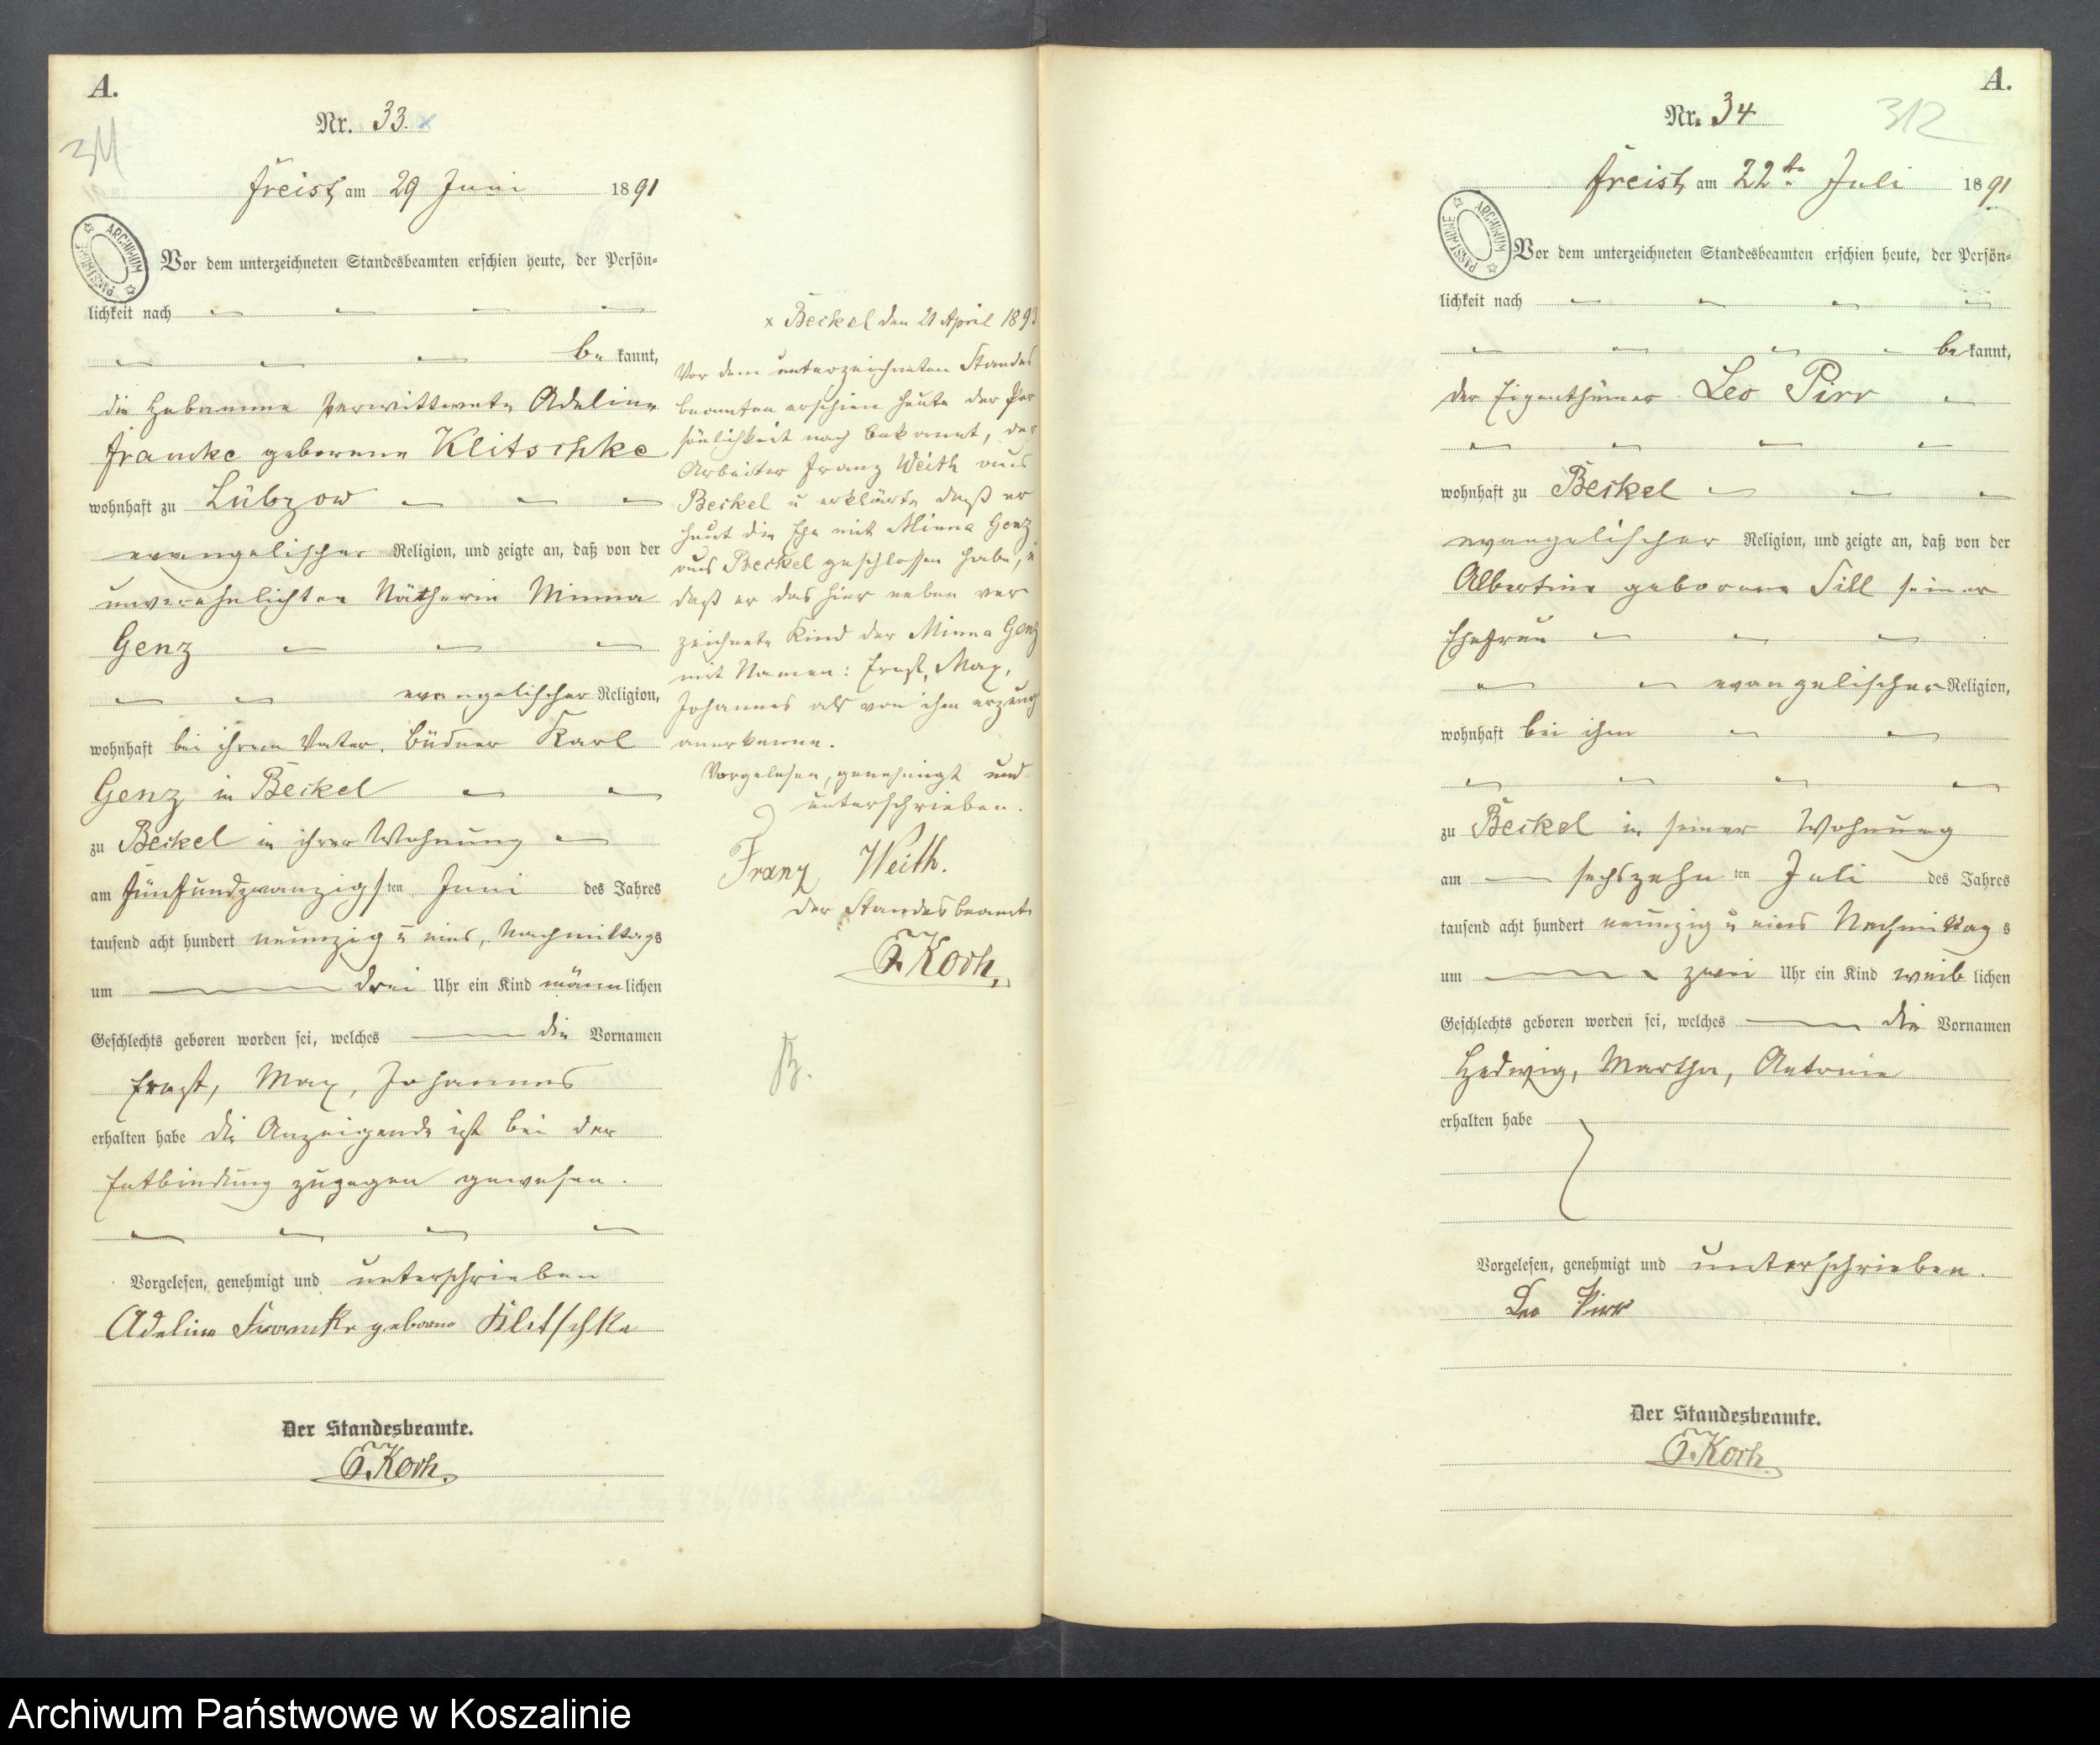 A.
Nr. 33. x
311
Freist, am 29 Juni 1891
Vor dem unterzeichneten Standesbeamten erschien heute, der Persön-
lichkeit nach
be kannt,
die Hebamme verwittwete Adeline
Francke geborene Klitschke
wohnhaft zu Lübzow
evangelischer Religion, und zeigte an, daß von der
unverehelichten Nätherin Minna
Genz
evangelischer Religion,
wohnhaft bei ihrem Vater, Büdner Karl
Genz in Beckel
zu Beckel in ihrer Wohnung
am fünfundzwanzigsten Juni des Jahres
tausend acht hundert neunzig u eins, Nachmittags
um drei Uhr ein Kind männlichen
Geschlechts geboren worden sei, welches die Vornamen
Ernst, Max, Johannes
erhalten habe die Anzeigende ist bei der
Entbindung zugegen gewesen.
Vorgelesen, genehmigt und unterschrieben
Adeline Francke geborne Klitschke
Der Standesbeamte.
Koch.
x Beckel den 21 April 1893
Vor dem unterzeichneten Standes
beamten erschien heute der Per
sönlichkeit nach bekannt, der
Arbeiter Franz Weith aus
Beckel u erklärte daß er
heut die Ehe mit Minna Genz
aus Beckel geschlossen habe, u
daß er das hier neben ver
zeichnete Kind der Minna Genz
mit Namen: Ernst, Max,
Johannes als von ihm erzeugt
anerkenne.
Vorgelesen, genehmigt und
unterschrieben.
Franz Weith.
Der Standesbeamte
Koch.
B.
ARCHIWUM PAŃSTWOWE
A.
Nr. 34
312
Freist, am 22ten Juli 1891
Vor dem unterzeichneten Standesbeamten erschien heute, der Persön-
lichkeit nach
be kannt,
der Eigenthümer Leo Pirr
wohnhaft zu Beckel
evangelischer Religion, und zeigte an, daß von der
Albertine geborene Till seiner
Ehefrau
evangelischer Religion,
wohnhaft bei ihm
zu Beckel in seiner Wohnung
am sechszehnten Juli des Jahres
tausend acht hundert neunzig u eins Nachmittags
um zwei Uhr ein Kind weiblichen
Geschlechts geboren worden sei, welches die Vornamen
Hedwig, Martha, Antonie
erhalten habe
Vorgelesen, genehmigt und unterschrieben.
Leo Pirr
Der Standesbeamte.
Koch
ARCHIWUM PAŃSTWOWE
Archiwum Państwowe w Koszalinie